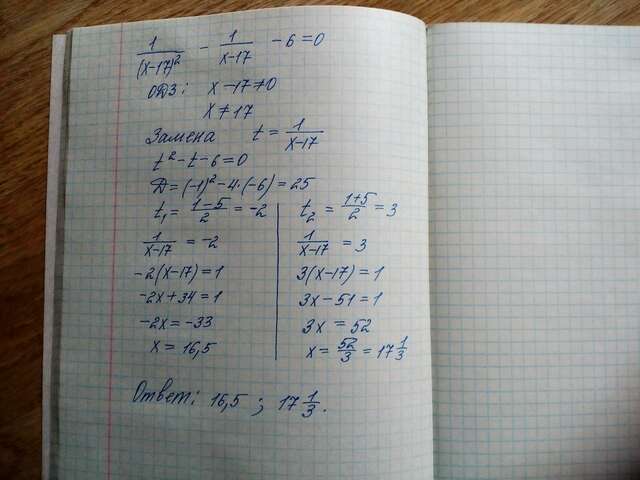 1/(x-17)² - 1/(x-17) - 6 = 0
ОДЗ: x - 17 ≠ 0
x ≠ 17
Замена t = 1/(x-17)
t² - t - 6 = 0
D = (-1)² - 4·(-6) = 25
t₁ = (1-5)/2 = -2
1/(x-17) = -2
-2(x-17) = 1
-2x + 34 = 1
-2x = -33
x = 16,5
t₂ = (1+5)/2 = 3
1/(x-17) = 3
3(x-17) = 1
3x - 51 = 1
3x = 52
x = 52/3 = 17 1/3
Ответ: 16,5 ; 17 1/3.